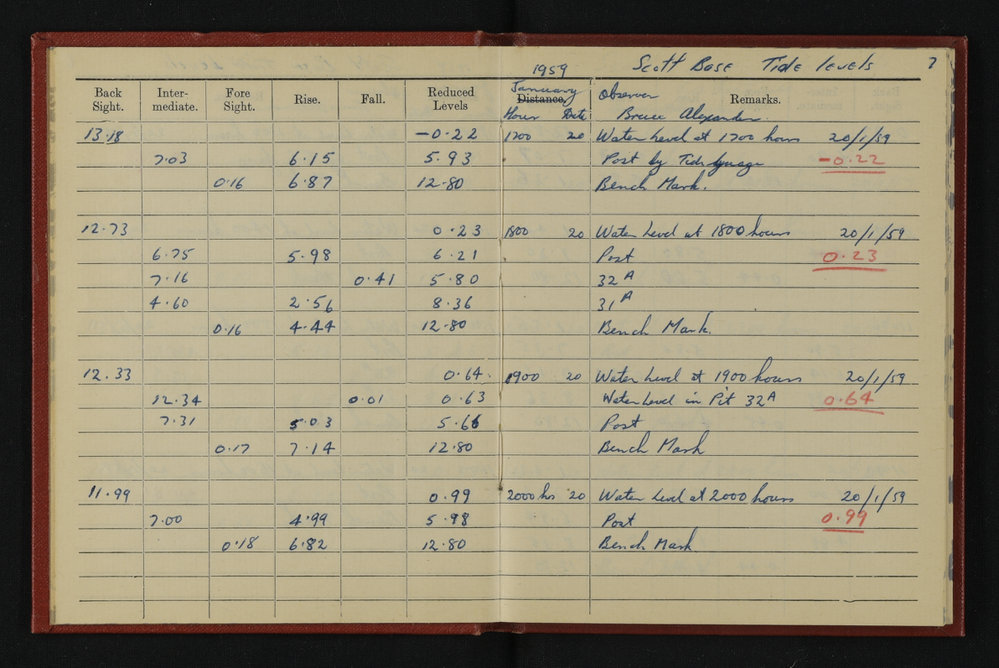 1959 Scott Base Tide levels 7
Back Sight. Inter-mediate. Fore Sight. Rise. Fall. Reduced Levels January Distance. Hour Date Observer Remarks. Bruce Alexander.
13.18 -0.22 1700 20 Water Level at 1700 hours 20/1/59
7.03 6.15 5.93 Post by Tide guage -0.22
0.16 6.87 12.80 Bench Mark.
12.73 0.23 1800 20 Water Level at 1800 hours 20/1/59
6.75 5.98 6.21 Post 0.23
7.16 0.41 5.80 32 A
4.60 2.56 8.36 31 A
0.16 4.44 12.80 Bench Mark.
12.33 0.64. 1900 20 Water Level at 1900 hours 20/1/59
12.34 0.01 0.63 Water Level in Pit 32A 0.64
7.31 5.03 5.66 Post
0.17 7.14 12.80 Bench Mark
11.99 0.99 2000 hrs 20 Water Level at 2000 hours 20/1/59
7.00 4.99 5.98 Post 0.99
0.18 6.82 12.80 Bench Mark